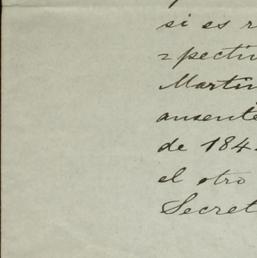 si es r
=pectiv
Martin
ausente
de 184
el otro
Secret